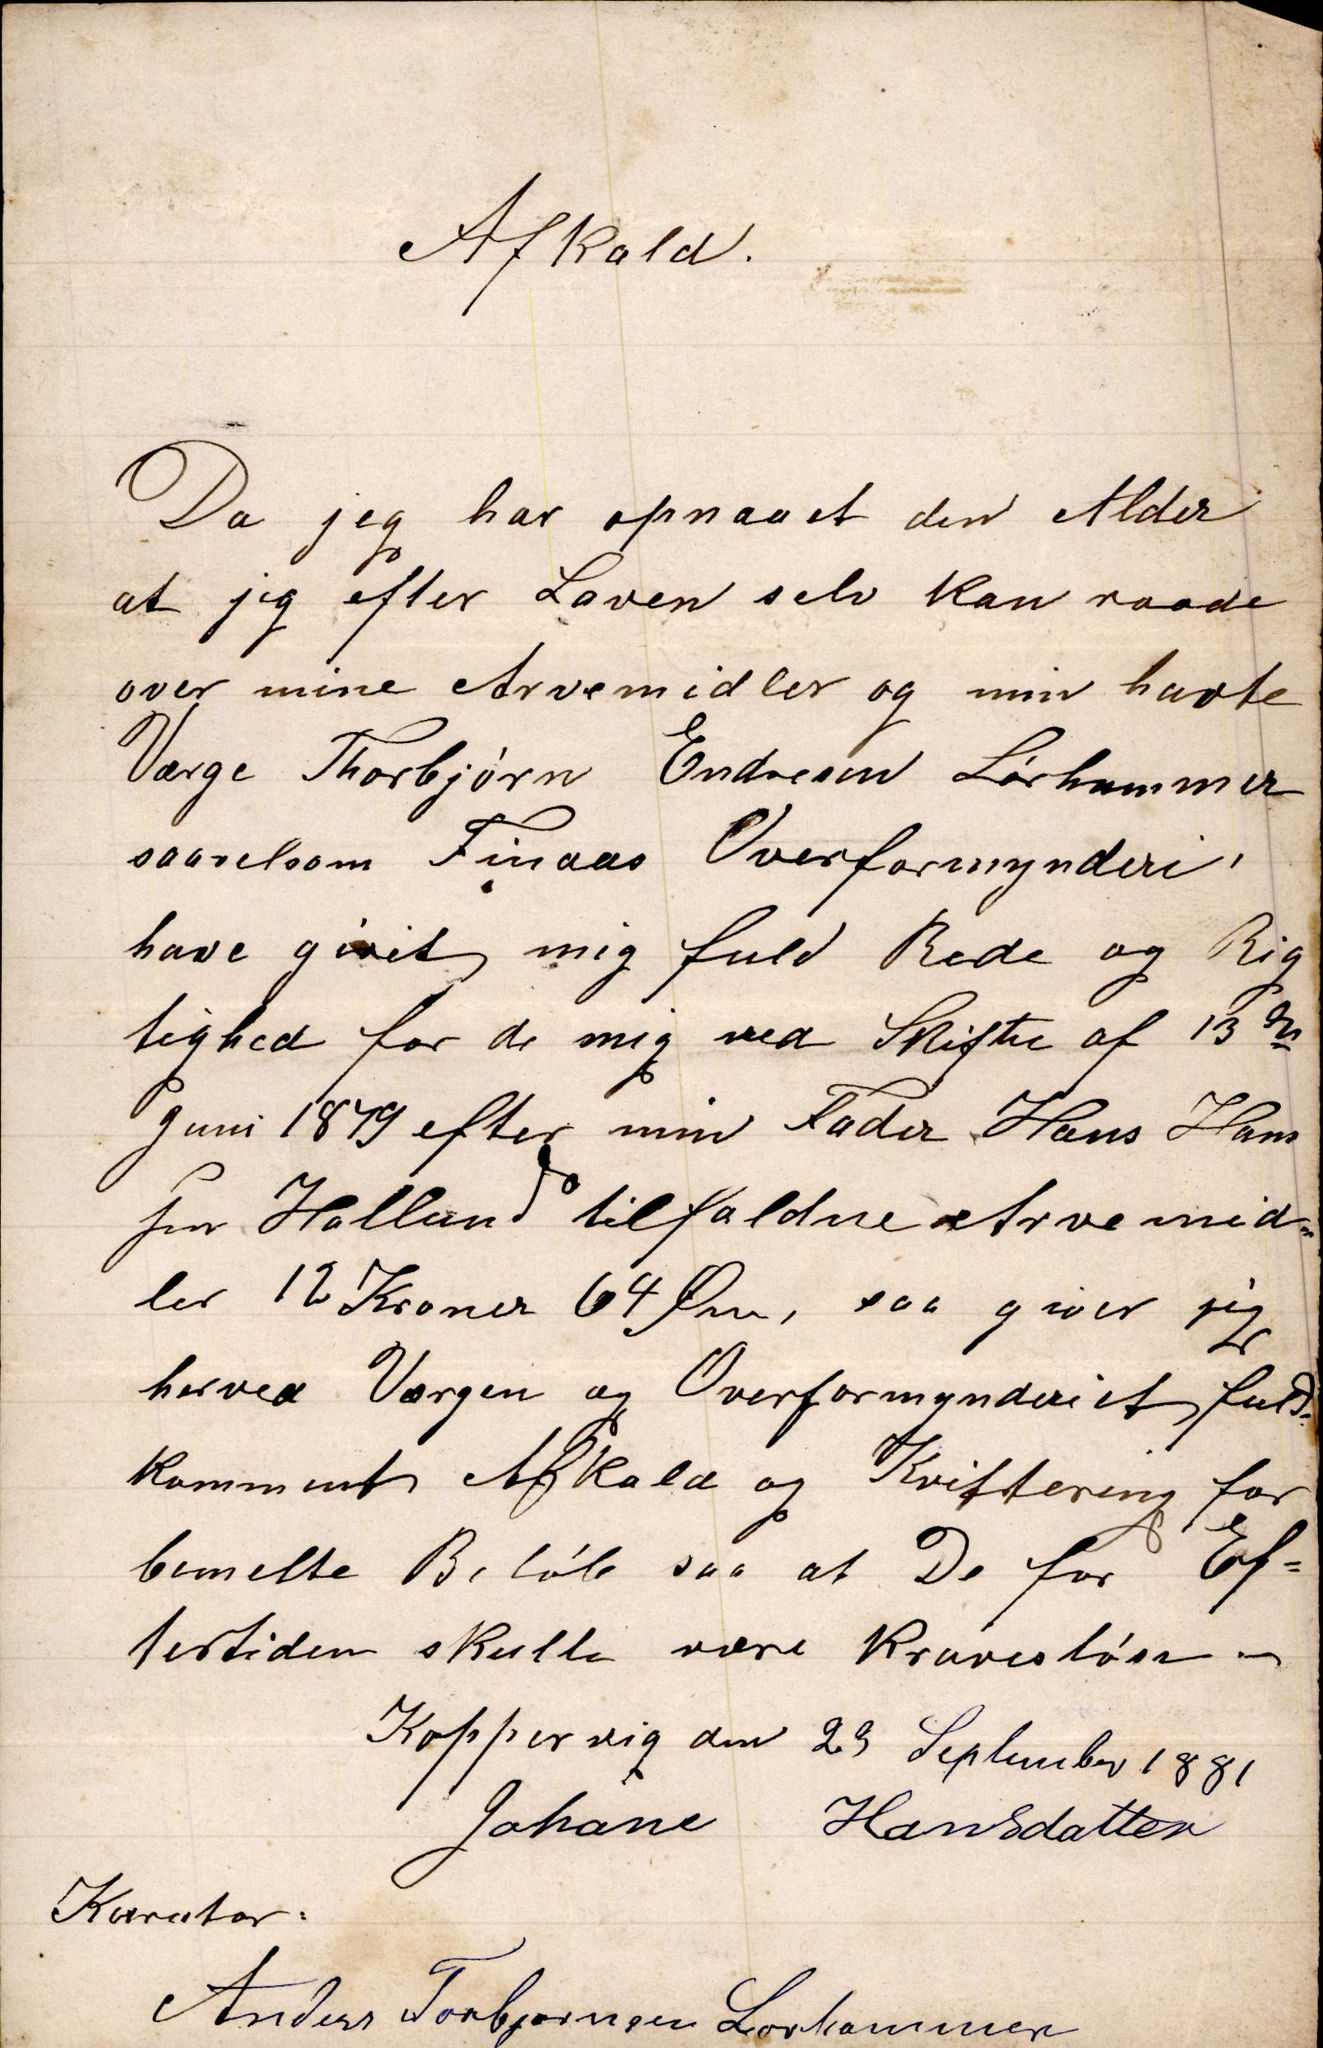 Afkald.
Da jeg har opnaaet den Alder
at jeg efter Loven selv kan raade
over mine Arvemidler og min havte
Værge Thorbjörn Endresen Lörhammer
saavelsom Finaas Overformynderi,
have givet mig fuld Rede og Rig
tighed for de mig ved Skifte af 13 de
Juni 1879 efter min Fader Hans Hans
sen Halland tilfaldne Arvemid-
ler 12 Kroner 64 Øre, saa giver jeg
herved Værgen og Overformynderiet fuld-
komment Afkald og Kvittering for
bemelte Belöb saa at De for Ef=
tertiden skulle være Kraveslöse -
Koppervig den 23 September 1881
Johane Hansdatter
Kurator:
Anders Torbjørnsen Lorhammer